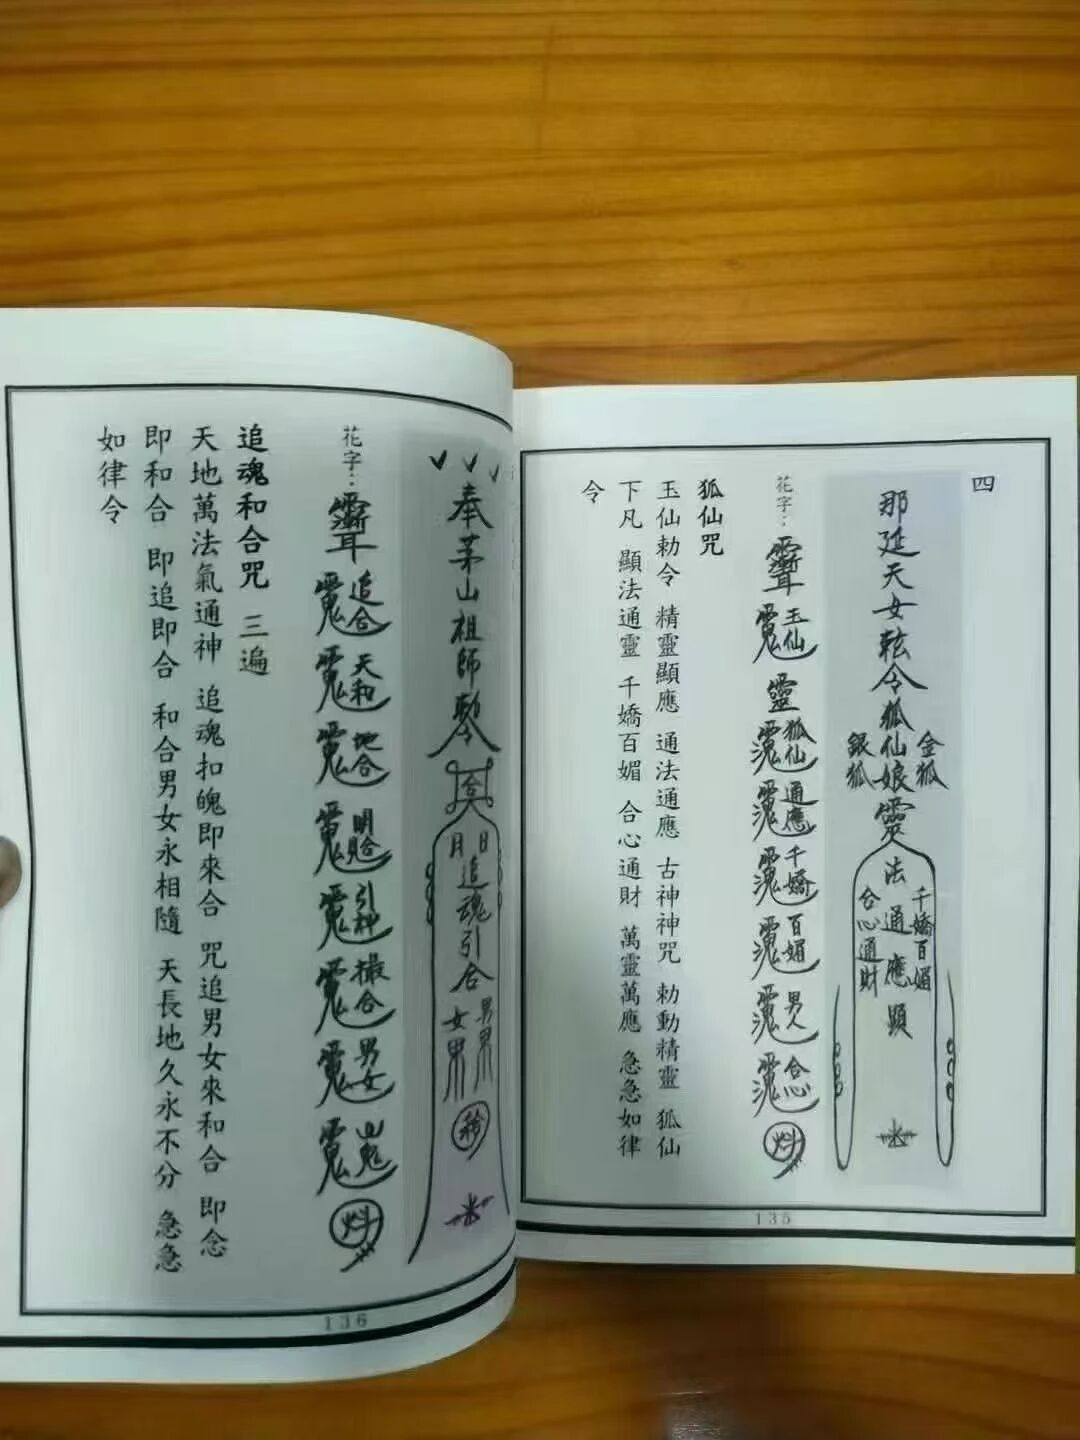 四
那延天女
令狐仙娘靈
金狐
銀狐
千嬌百媚
法通應顯
合心通財
花字：
玉仙
靈
狐仙
通應
千嬌
百媚
男人
合心
狐仙咒
玉仙勅令 精靈顯應 通法通應 古神神咒 勅動精靈 狐仙
下凡 顯法通靈 千嬌百媚 合心通財 萬靈萬應 急急如律
令
135
奉茅山祖師勅令
日
月
追魂引合
男男
女男
花字：
追合
天和
地合
引神
撮合
男女
追魂和合咒 三遍
天地萬法氣通神 追魂扣魄即來合 咒追男女來和合 即念
即和合 即追即合 和合男女永相隨 天長地久永不分 急急
如律令
136